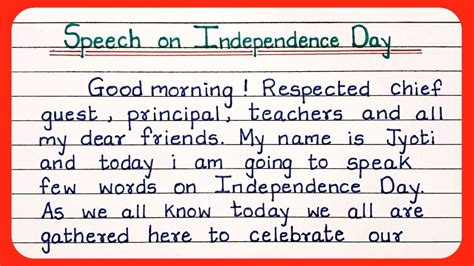 Speech on Independence Day
Good morning ! Respected chief
guest, principal, teachers and all
my dear friends. My name is Jyoti
and today i am going to speak
few words on Independence Day.
As we all know today we all are
gathered here to celebrate our